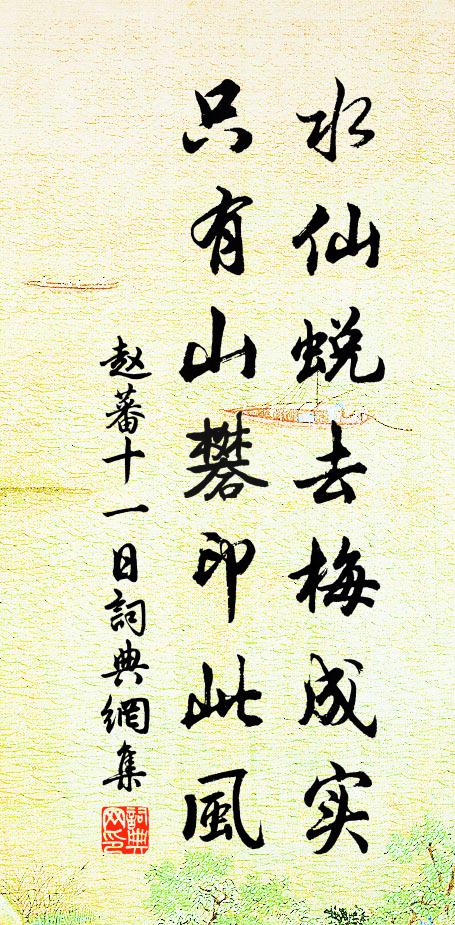 水仙蜕去梅成实
只有山礬印此風
赵蕃十一日詞典網集
詞典網印